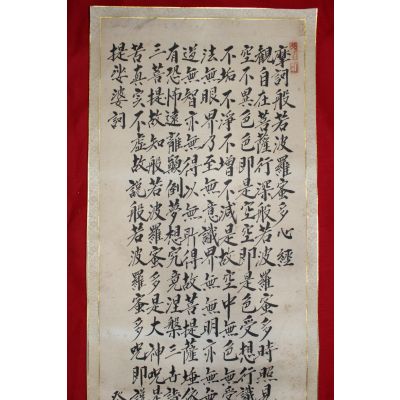 摩訶般若波羅蜜多心經
觀自在菩薩行深般若波羅蜜多時照見
空不異色色即是空空即是色受想行識
不垢不淨不增不減是故空中無色無受
法無眼界乃至無意識界無無明亦無
道無智亦無得以無所得故菩提薩埵依
有恐怖遠離顛倒夢想究竟涅槃三世諸
三菩提故知般若波羅蜜多是大神呪是
苦真實不虛故說般若波羅蜜多呪即說
提娑婆訶